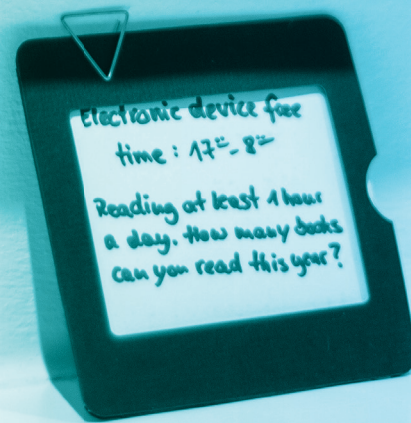 Electronic device free
time : 17⁰⁰ - 8⁰⁰
Reading at least 1 hour
a day. How many books
can you read this year?